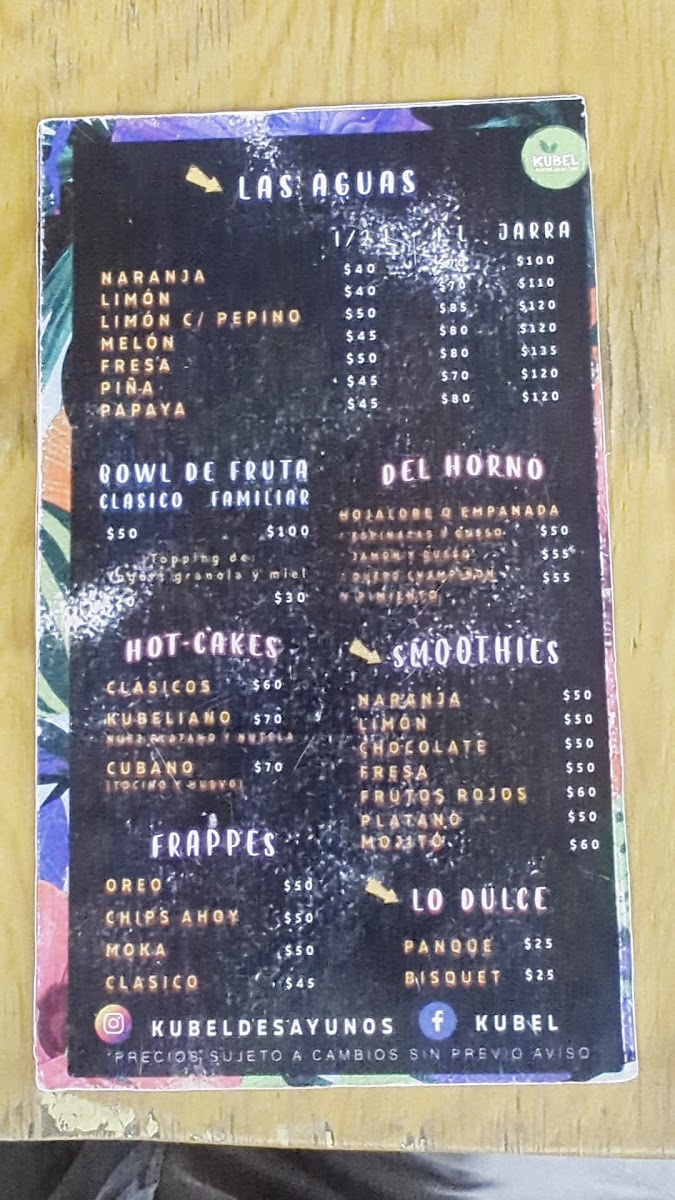 KUBEL
LAS AGUAS
1/2 L JARRA
NARANJA $40 $100
LIMÓN $40 $70 $110
LIMÓN C/ PEPINO $50 $85 $120
MELÓN $45 $80 $120
FRESA $50 $80 $135
PIÑA $45 $70 $120
PAPAYA $45 $80 $120
BOWL DE FRUTA
CLASICO FAMILIAR
$50 $100
Topping de:
yogurt granola y miel
$30
DEL HORNO
HOJALDRE O EMPANADA
ESPINACAS Y QUESO $50
JAMON Y QUESO $55
CHAMPIÑON $55
Y PIMIENTO
HOT-CAKES
CLÁSICOS $60
KUBELIANO $70
NUEZ PLATANO Y NUTELA
CUBANO $70
(TOCINO Y HUEVO)
SMOOTHIES
NARANJA $50
LIMÓN $50
CHOCOLATE $50
FRESA $50
FRUTOS ROJOS $60
PLATANO $50
MOJITO $60
FRAPPES
OREO $50
CHIPS AHOY $50
MOKA $50
CLASICO $45
LO DULCE
PANQUE $25
BISQUET $25
KUBELDESAYUNOS KUBEL
*PRECIOS SUJETO A CAMBIOS SIN PREVIO AVISO